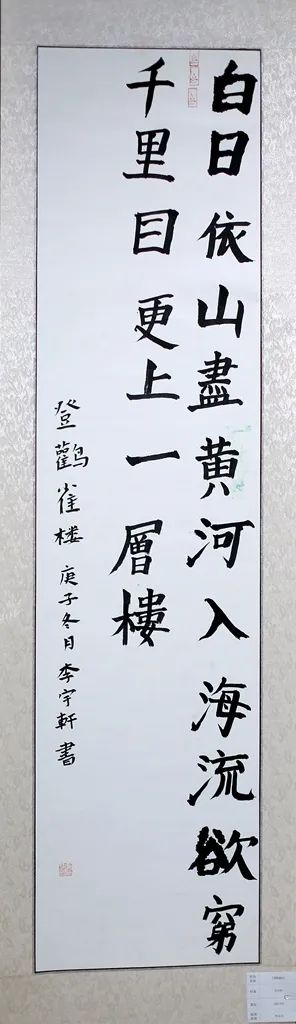 白日依山盡黃河入海流欲窮
千里目更上一層樓
登鸛雀楼 庚子冬月李宇軒書